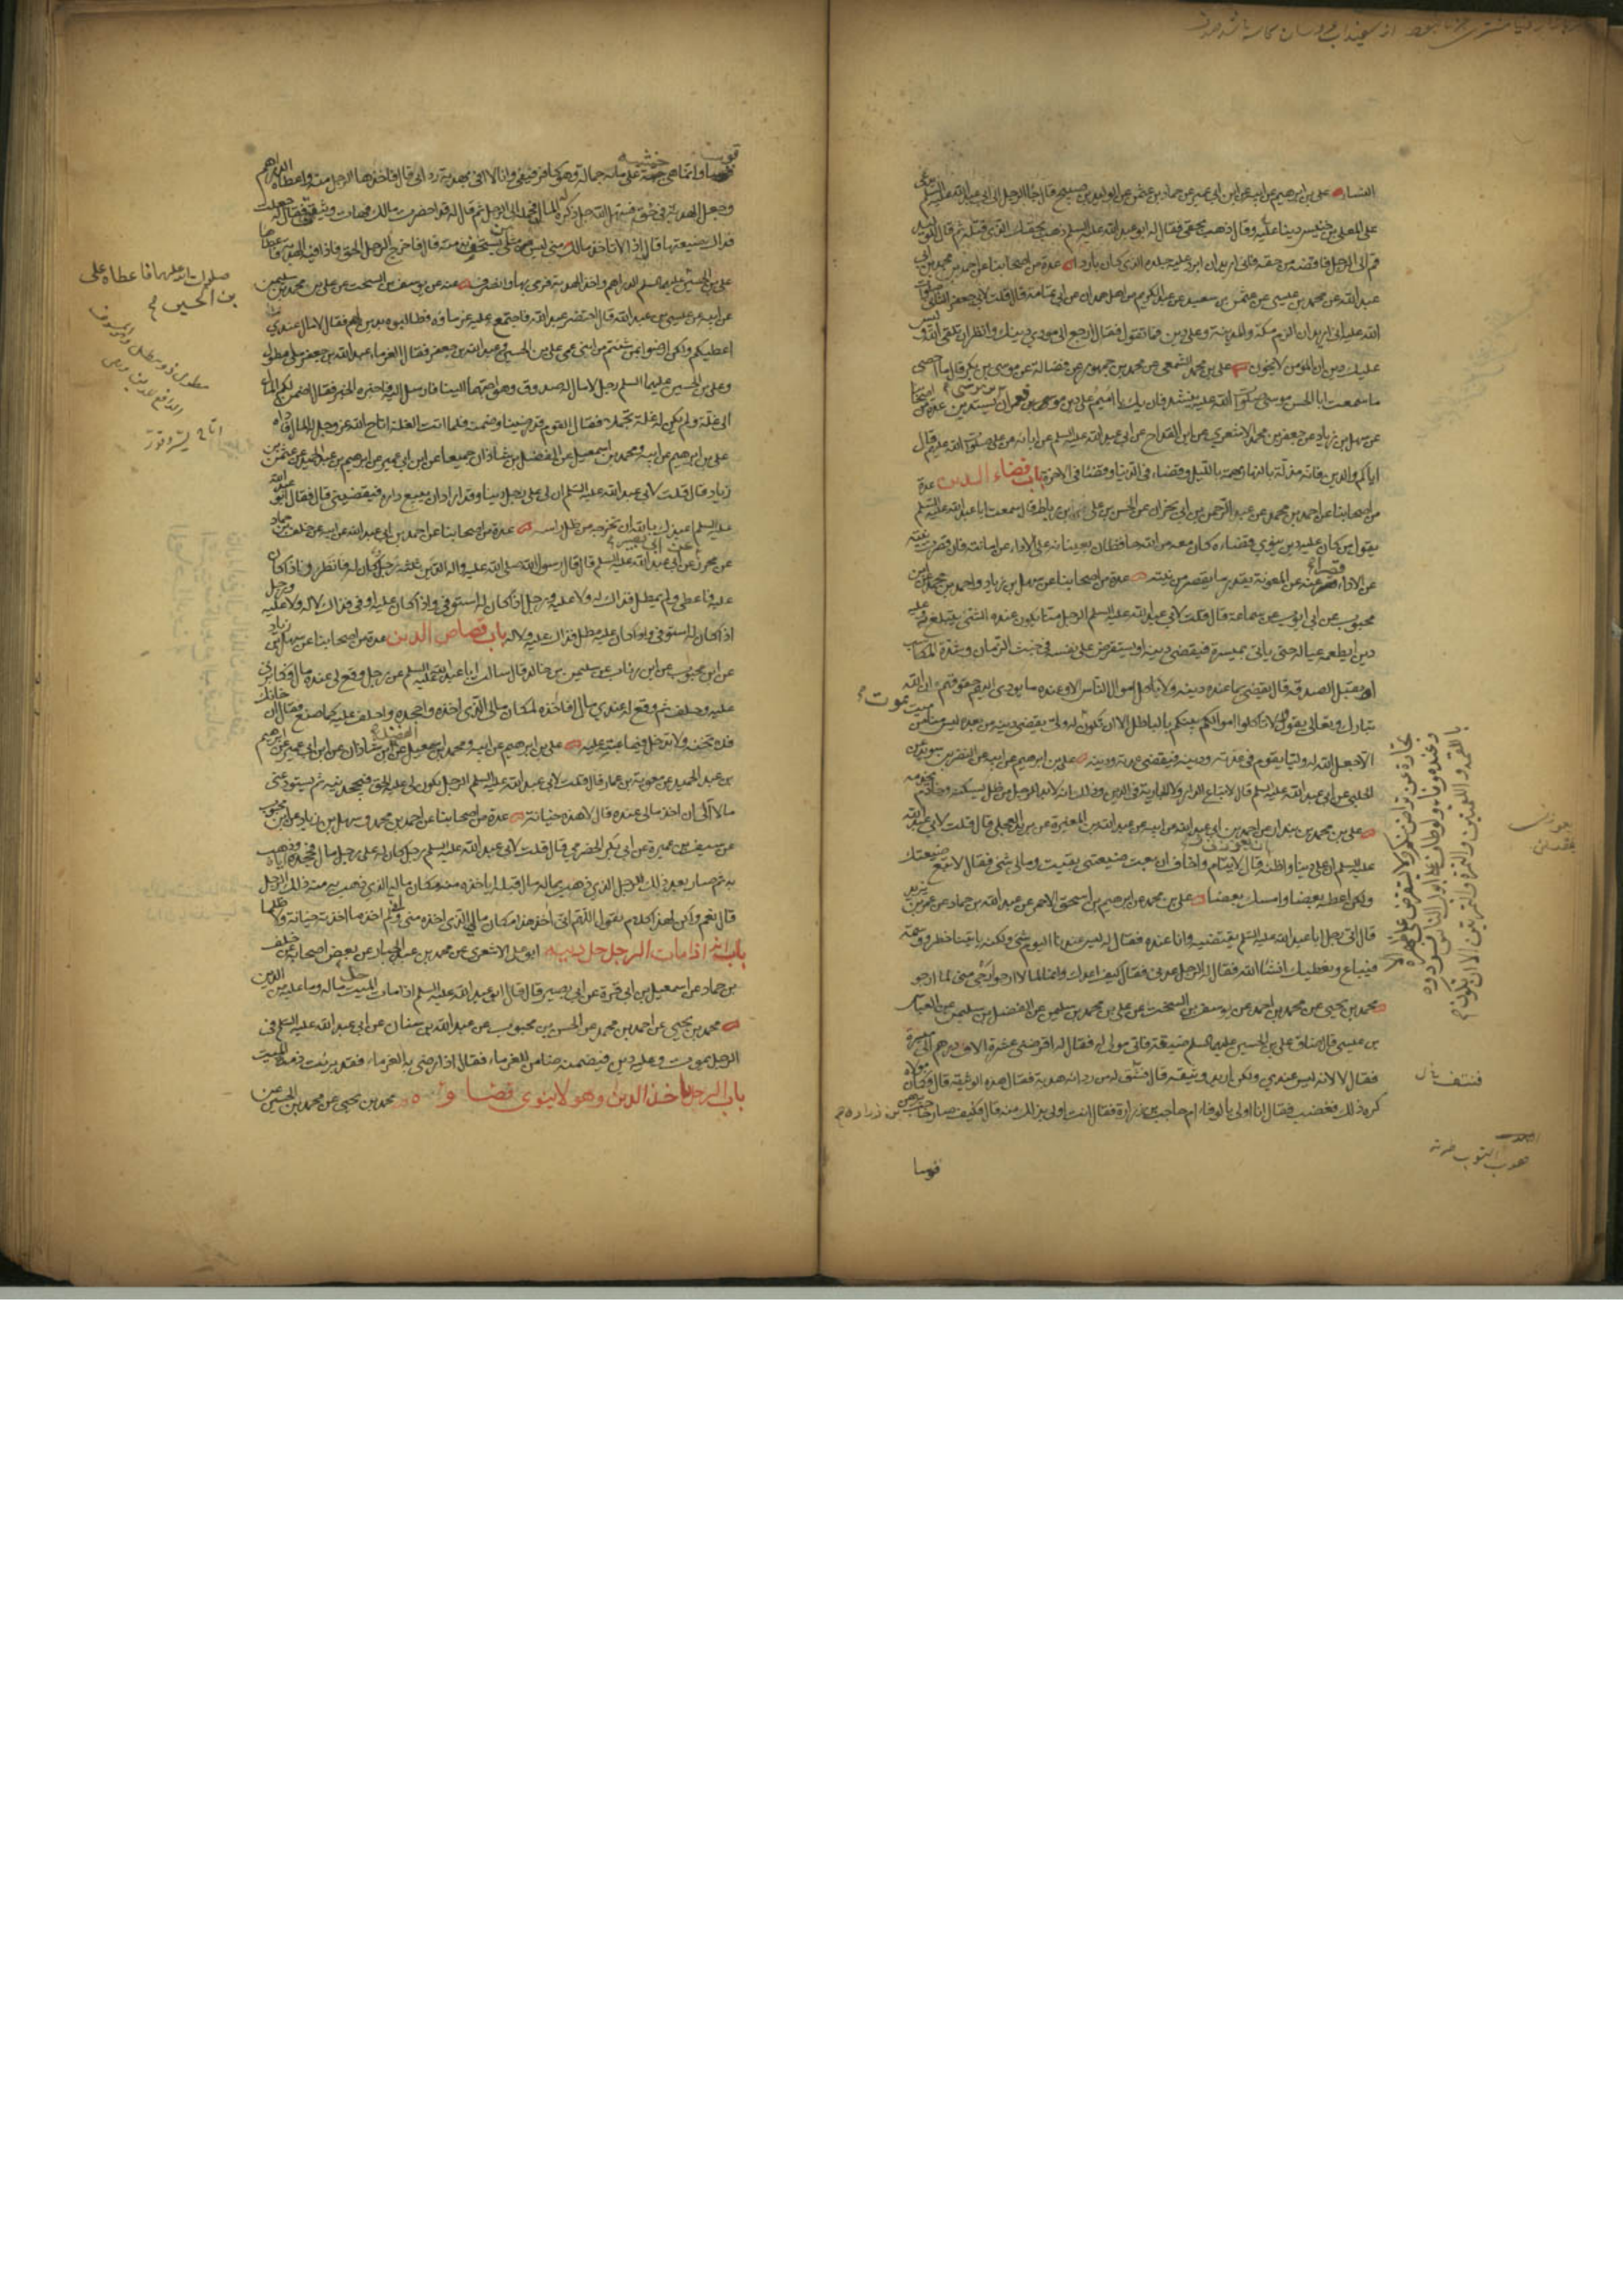 النساء علي بن ابرهيم عن ابيه عن ابن ابي عمير عن حماد بن عثمن عن الوليد بن صبيح قال جاء الرجل الى ابي عبد الله عليه السلم يدعي
على المعلى بن خنيس دينا عليه وقال ذهب بحقي فقال له ابو عبد الله عليه السلم ذهب بحقك الذي قتله ثم قال للوليد
قم الى الرجل فاقضه من حقه فاني اريد ان ابرد عليه جلده الذي كان باردا عدة من اصحابنا عن احمد بن محمد بن ابي
عبد الله عن محمد بن عيسى عن عثمن بن سعيد عن عبد الكريم من اهل همدان عن ابي ثمامة قال قلت لابي جعفر الثاني
الله عليه اني اريد ان الزم مكة والمدينة وعلي دين فما تقول فقال ارجع الى مودي دينك وانظر ان تلقى الله وليس
عليك دين ان المؤمن لا يخون علي بن محمد الشمعي عن محمد بن جمهور عن فضالة عن موسى بن بكر قال ما احصي
ما سمعت ابا الحسن موسى صلوات الله عليه ينشد فان يك يا اميم علي دين موسى بن عمران يستدين عدة من اصحابنا
عن سهل بن زياد عن جعفر بن محمد الاشعري عن ابن القداح عن ابي عبد الله عليه السلم عن ابائه عن علي صلوات الله عليهم قال
اياكم والدين فانه مذلة بالنهار مهمة بالليل وقضاء في الدنيا وقضاء في الاخرة باب قضاء الدين عدة
من اصحابنا عن احمد بن محمد عن عبد الرحمن بن ابي نجران عن الحسن بن علي بن رباط قال سمعت ابا عبد الله عليه السلم
يقول من كان عليه دين ينوي قضاءه كان معه من الله حافظان يعينانه على الاداء عن امانته فان قصرت نيته
عن الاداء قصرا عنه من المعونة بقدر ما يقصر من نيته عدة من اصحابنا عن سهل بن زياد واحمد بن محمد عن ابن
محبوب عن ابي ايوب عن سماعة قال قلت لابي عبد الله عليه السلم الرجل منا يكون عنده الشئ يتبلغ به وعليه
دين ايطعمه عياله حتى ياتي بميسرة فيقضي دينه او يستقرض على نفسه في خبث الزمان وشدة المكاسب
او يقبل الصدقة قال يقضي بما عنده دينه ولا ياكل اموال الناس الا وعنده ما يودي اليهم حقوقهم ان الله
تبارك وتعالى يقول لا تاكلوا اموالكم بينكم بالباطل الا ان تكون له ولي يقضي دينه من بعده ليس منا من ميت
الا جعل الله له وليا يقوم في عدته ودينه فيقضي عدته ودينه علي بن ابرهيم عن ابيه عن النضر بن سويد عن
الحلبي عن ابي عبد الله عليه السلم قال لا تباع الدار ولا الجارية في الدين وذلك انه لا بد للرجل من ظل يسكنه وخادم يخدمه
علي بن محمد بن بندار عن احمد بن ابي عبد الله عن ابيه عن عبد الله بن المغيرة عن بريد العجلي قال قلت لابي عبد الله
عليه السلم ان علي دينا واظنه قال لايتام واخاف ان بعت ضيعتي بقيت وما لي شئ فقال لا تبع ضيعتك
ولكن اعطه بعضا وامسك بعضا علي بن محمد عن ابرهيم بن اسحق الاحمر عن عبد الله بن حماد عن عمر بن يزيد
قال اتى رجل ابا عبد الله عليه السلم يقتضيه وانا عنده فقال له ليس عندنا اليوم شئ ولكنه ياتينا خطر ووسمة
فيباع ونعطيك انشاء الله فقال له الرجل عدني فقال كيف اعدك وانا لما لا ارجو ارجى مني لما ارجو
محمد بن يحيى عن محمد بن احمد عن يوسف بن السخت عن علي بن محمد بن سليمن عن الفضل بن سليمن عن العباس
بن عيسى قال ضاق علي بن الحسين عليهما السلم ضيقة فاتى مولى له فقال له اقرضني عشرة الاف درهم الى ميسرة
فقال لا لانه ليس عندي ولكن اريد وثيقة قال فشق له من ردائه هدبة فقال هذه الوثيقة قال وكان مولاه
كره ذلك فغضب فقال انا اولى بالوفاء ام حاجب بن زرارة فقال انت اولى بذلك منه قال فكيف صار حاجب يرهن
بن زرارة
يموت
فنتف
قوسا
قوسا وانما هي خشبة على مائة حمالة وهو كافر فيفي وانا لا افي بهدبة ردائي قال فاخذها الرجل منه واعطاه الدراهم
وجعل الهدبة في حق فسهل الله جل ذكره له المال فحمله الى الرجل ثم قال له قد احضرت مالك فهات وثيقتي فقال له جعلت
فداك ضيعتها قال اذا لا تاخذ مالك مني ليس مثلي يستخف بذمته قال فاخرج الرجل الحق فاذا فيه الهدبة فاعطاها
علي بن الحسين عليهما السلم الدراهم واخذ الهدبة فرمى بها وانصرف عنه عن يوسف بن السخت عن علي بن محمد بن سليمن
عن ابيه عن عيسى بن عبد الله قال احتضر عبد الله فاجتمع عليه غرماؤه فطالبوه بدين لهم فقال لا مال عندي
اعطيكم ولكن ارضوا بمن شئتم من ابني عمي علي بن الحسين وعبد الله بن جعفر فقال الغرماء عبد الله بن جعفر ملي مطول
وعلي بن الحسين عليهما السلم رجل لا مال له صدوق وهو احبهما الينا فارسل اليه فاخبره الخبر فقال اضمن لكم المال
الى غلة ولم يكن له غلة تجملا فقال القوم قد رضينا وضمنه فلما اتت الغلة اتاح الله عز وجل المال فاداه
علي بن ابرهيم عن ابيه ومحمد بن اسمعيل عن الفضل بن شاذان جميعا عن ابن ابي عمير عن ابرهيم بن عبد الحميد عن عثمن بن
زياد قال قلت لابي عبد الله عليه السلم ان لي على رجل دينا وقد اراد ان يبيع داره فيقضيني قال فقال ابو عبد الله
عليه السلم اعيذك بالله ان تخرجه من ظل راسه عدة من اصحابنا عن احمد بن ابي عبد الله عن ابيه عن خلف بن حماد
عن محرز عن ابي بصير عن ابي عبد الله عليه السلم قال قال رسول الله صلى الله عليه واله الدين ثلثة رجل كان له فانظر واذا كان
عليه فاعطى ولم يمطل فذاك له ولا عليه ورجل اذا كان له استوفى واذا كان عليه اوفى فذاك لا له ولا عليه ورجل
اذا كان له استوفى واذا كان عليه مطل فذاك عليه ولا له باب قصاص الدين عدة من اصحابنا عن سهل بن زياد
عن ابن محبوب عن ابن رئاب عن سليمن بن خالد قال سالت ابا عبد الله عليه السلم عن رجل وقع لي عنده مال فكابرني
عليه وحلف ثم وقع له عندي مال افاخذه لمكان مالي الذي اخذه واجحده واحلف عليه كما صنع فقال ان خانك
فلا تخنه ولا تدخل فيما عبته عليه علي بن ابرهيم عن ابيه ومحمد بن اسمعيل عن الفضل بن شاذان عن ابن ابي عمير عن ابرهيم
بن عبد الحميد عن معوية بن عمار قال قلت لابي عبد الله عليه السلم الرجل يكون لي عليه الحق فيجحدنيه ثم يستودعني
مالا الي ان اخذ مالي عنده قال لا هذه خيانة عدة من اصحابنا عن احمد بن محمد وسهل بن زياد عن ابن محبوب
عن سيف بن عميرة عن ابي بكر الحضرمي قال قلت لابي عبد الله عليه السلم رجل كان له على رجل مال فجحده اياه وذهب
به ثم صار بعد ذلك للرجل الذي ذهب بماله مال قبله اياخذه منه مكان ماله الذي ذهب به منه ذلك الرجل
قال نعم ولكن لهذا كلام يقول اللهم اني اخذ هذا مكان مالي الذي اخذه مني واني لم اخذ ما اخذت خيانة ولا ظلما
باب انه اذا مات الرجل حل دينه ابو علي الاشعري عن محمد بن عبد الجبار عن بعض اصحابه عن خلف
بن حماد عن اسمعيل بن ابي قرة عن ابي بصير قال قال ابو عبد الله عليه السلم اذا مات الميت حل ماله وما عليه من الدين
محمد بن يحيى عن احمد بن محمد عن الحسن بن محبوب عن عبد الله بن سنان عن ابي عبد الله عليه السلم في
الرجل يموت وعليه دين فيضمنه ضامن للغرماء فقال اذا رضي به الغرماء فقد برئت ذمة الميت
باب الرجل ياخذ الدين وهو لا ينوي قضاءه محمد بن يحيى عن محمد بن الحسين عن
صلوات الله عليهما فاعطاه علي
بن الحسين